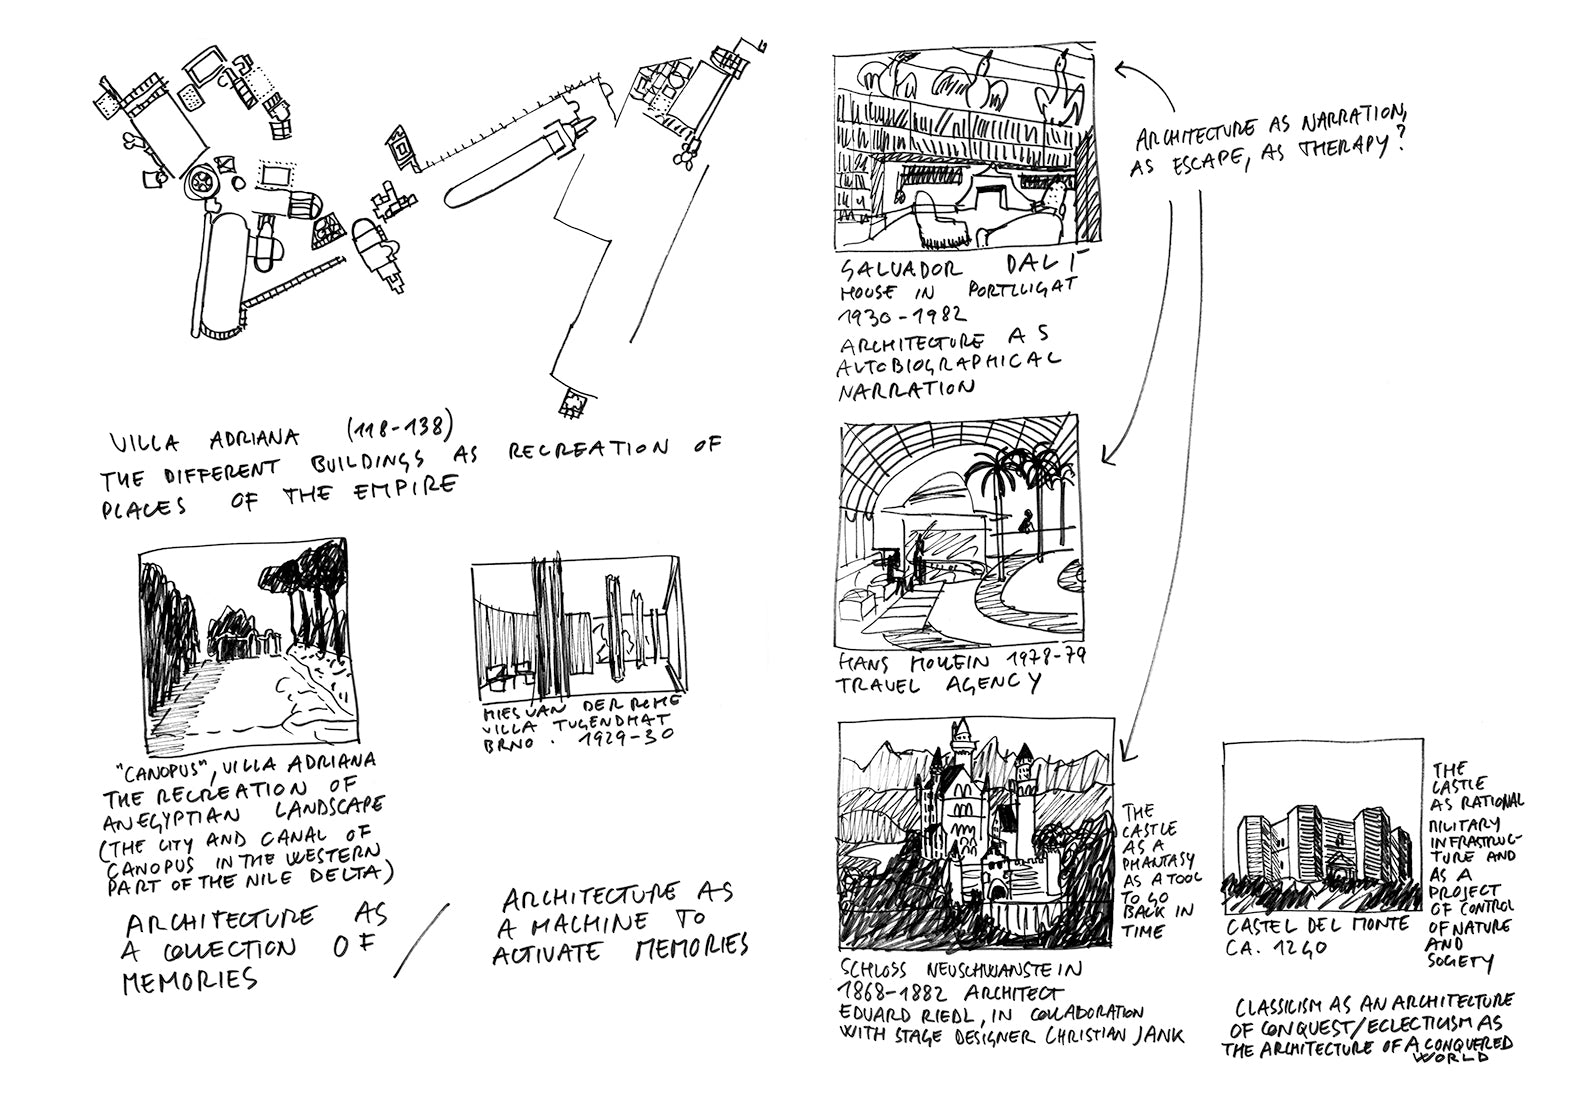 VILLA ADRIANA (118-138)
THE DIFFERENT BUILDINGS AS RECREATION OF
PLACES OF THE EMPIRE
"CANOPUS", VILLA ADRIANA
THE RECREATION OF
AN EGYPTIAN LANDSCAPE
(THE CITY AND CANAL OF
CANOPUS IN THE WESTERN
PART OF THE NILE DELTA)
ARCHITECTURE AS
A COLLECTION OF
MEMORIES
MIES VAN DER ROHE
VILLA TUGENDHAT
BRNO. 1929-30
ARCHITECTURE AS
A MACHINE TO
ACTIVATE MEMORIES
ARCHITECTURE AS NARRATION,
AS ESCAPE, AS THERAPY?
SALVADOR DALI
HOUSE IN PORTLLIGAT
1930-1982
ARCHITECTURE AS
AUTOBIOGRAPHICAL
NARRATION
HANS HOLLEIN 1978-79
TRAVEL AGENCY
THE
CASTLE
AS A
PHANTASY
AS A TOOL
TO GO
BACK IN
TIME
SCHLOSS NEUSCHWANSTEIN
1868-1882 ARCHITECT
EDUARD RIEDL, IN COLLABORATION
WITH STAGE DESIGNER CHRISTIAN JANK
THE
CASTLE
AS RATIONAL
MILITARY
INFRASTRUC-
TURE AND
AS A
PROJECT
OF CONTROL
OF NATURE
AND
SOCIETY
CASTEL DEL MONTE
CA. 1240
CLASSICISM AS AN ARCHITECTURE
OF CONQUEST/ECLECTICISM AS
THE ARCHITECTURE OF A CONQUERED
WORLD